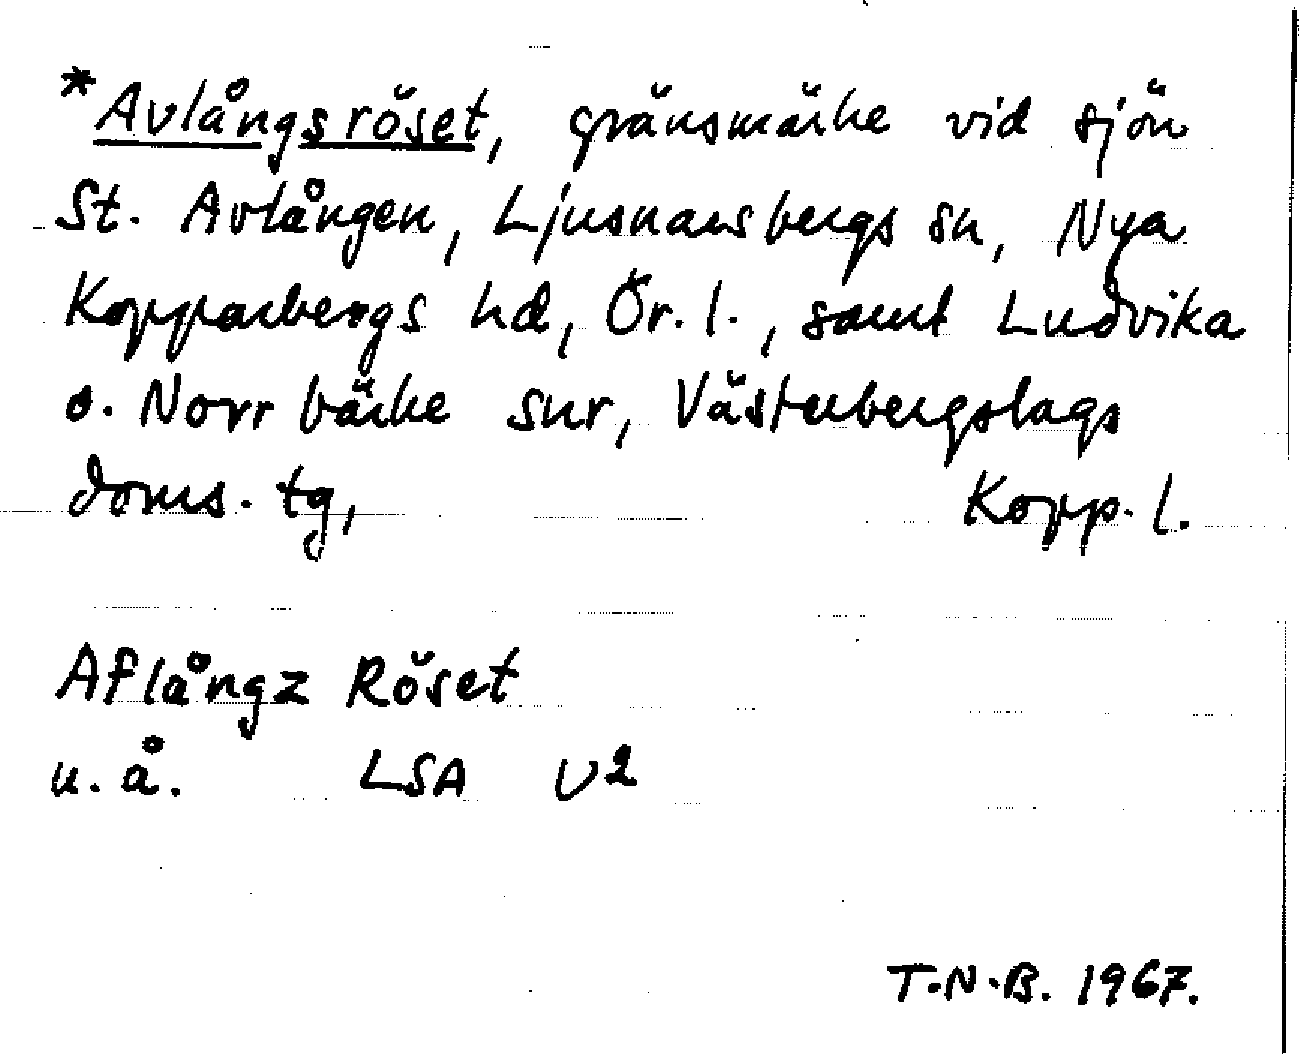 *Avlångsröset, gränsmärke vid sjön
St. Avlången, Ljusnarsbergs sn, Nya
Kopparbergs hd, Ör. l., samt Ludvika
o. Norrbärke snr, Västerbergslags
doms. tg, Kopp. l.
Aflångz Röset
u. å. LSA U2
T.N.B. 1967.